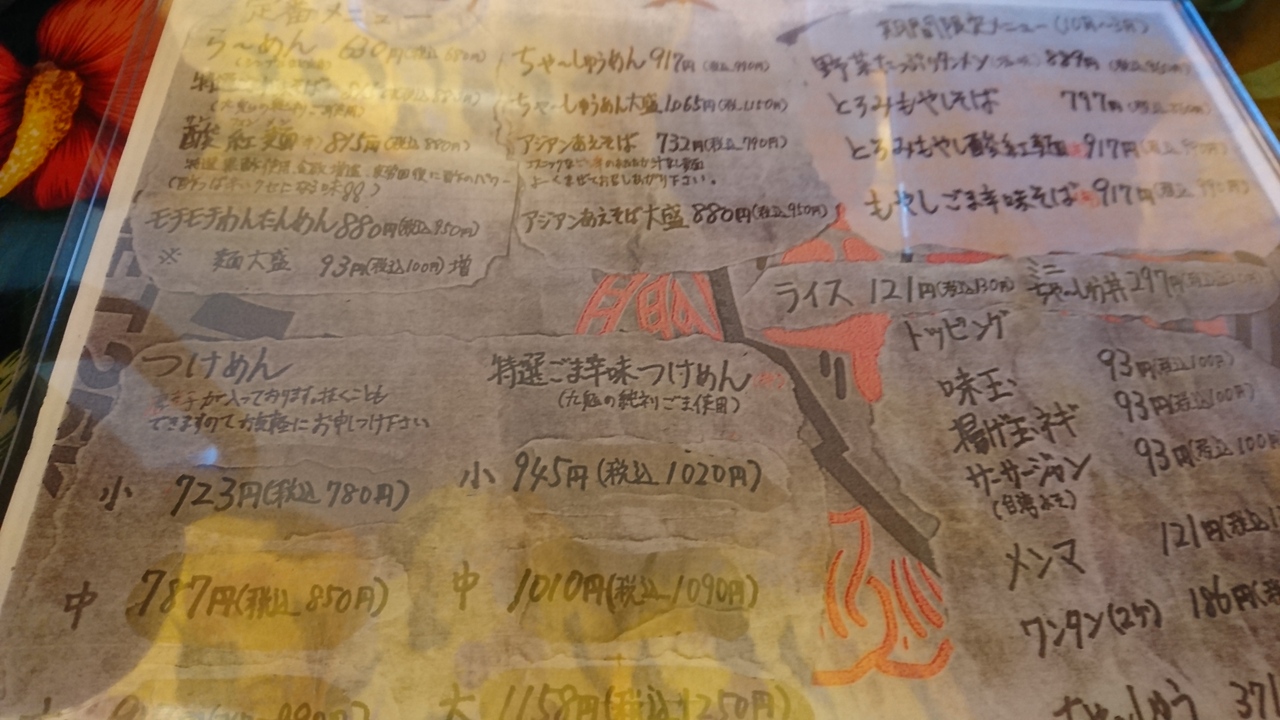 定番メニュー
ら〜めん 630円(税込680円)
酸紅麺 815円(税込880円)
モチモチわんたんめん 880円(税込950円)
※ 麺大盛 93円(税込100円)増
ちゃーしゅうめん 917円(税込990円)
ちゃーしゅうめん大盛 1065円(税込1150円)
アジアンあえそば 732円(税込790円)
よーくまぜてお召しあがり下さい。
アジアンあえそば大盛 880円(税込950円)
期間限定メニュー(10月〜3月)
野菜たっぷりタンメン 889円
とろみもやしそば 797円
とろみもやし酸紅麺 917円
もやしごま辛味そば 917円(税込990円)
ライス 121円(税込130円) ミニちゃーしゅう丼 297円
つけめん
が入っております。抜くことも
できますのでお気軽にお申しつけ下さい
小 723円(税込780円)
中 787円(税込850円)
特選ごま辛味つけめん
(九鬼の純ねりごま使用)
小 945円(税込1020円)
中 1010円(税込1090円)
大 1158円(税込1250円)
トッピング
味玉 93円(税込100円)
揚げ玉ネギ 93円(税込100円)
サーサージャン 93円(税込100
(台湾みそ)
メンマ 121円(税込
ワンタン(2ケ) 186円
ちゃーしゅう 371